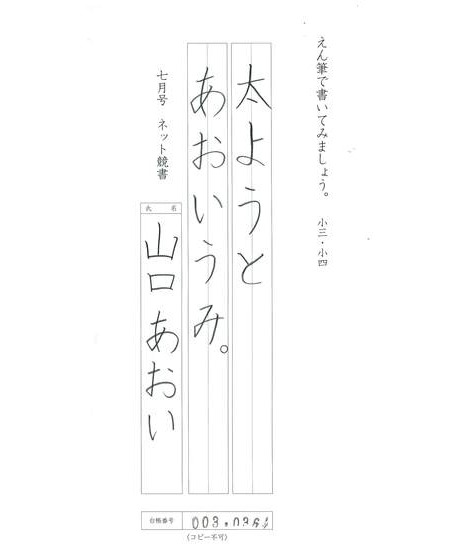 えん筆で書いてみましょう。 小三・小四
太ようと
あおいうみ。
七月号 ネット競書
氏 名
山口 あおい
台帳番号
(コピー不可)